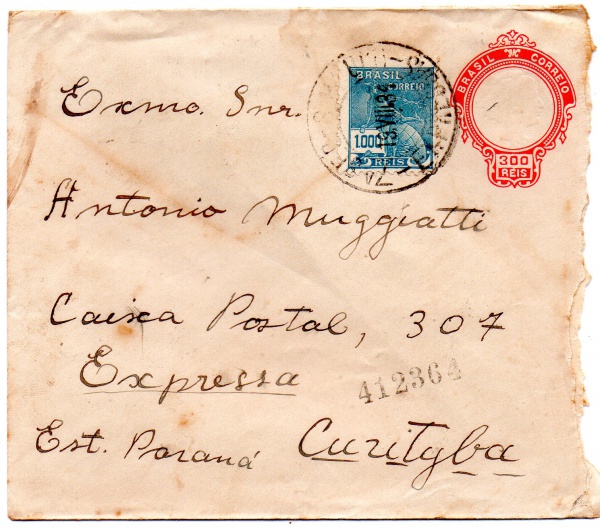 Exmo. Snr.
BRASIL
CORREIO
1.000
REIS
BRASIL CORREIO
300
REIS
Antonio Muggiatti
Caixa Postal, 307
Expressa
412364
Est. Paraná Curityba